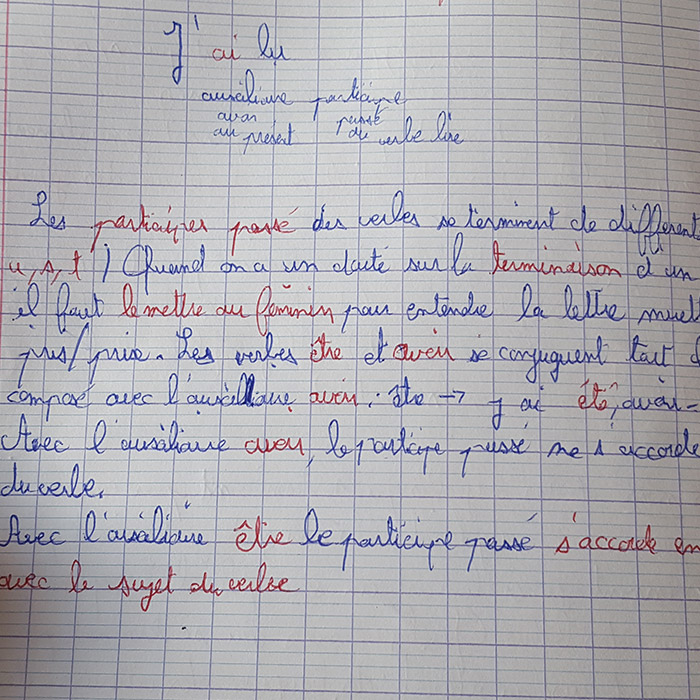 J'ai lu
auxiliaire participe
avoir passé
au présent du verbe lire
Les participes passé des verbes se terminent de différent
u, s, t ) Quand on a un doute sur la terminaison d'un
il faut le mettre au féminin pour entendre la lettre muet
pris/prise. Les verbes être et avoir se conjuguent tout
composé avec l'auxiliaire avoir : être → j'ai été, avoir -
Avec l'auxiliaire avoir, le participe passé ne s'accorde
du verbe.
Avec l'auxiliaire être le participe passé s'accorde en
avec le sujet du verbe